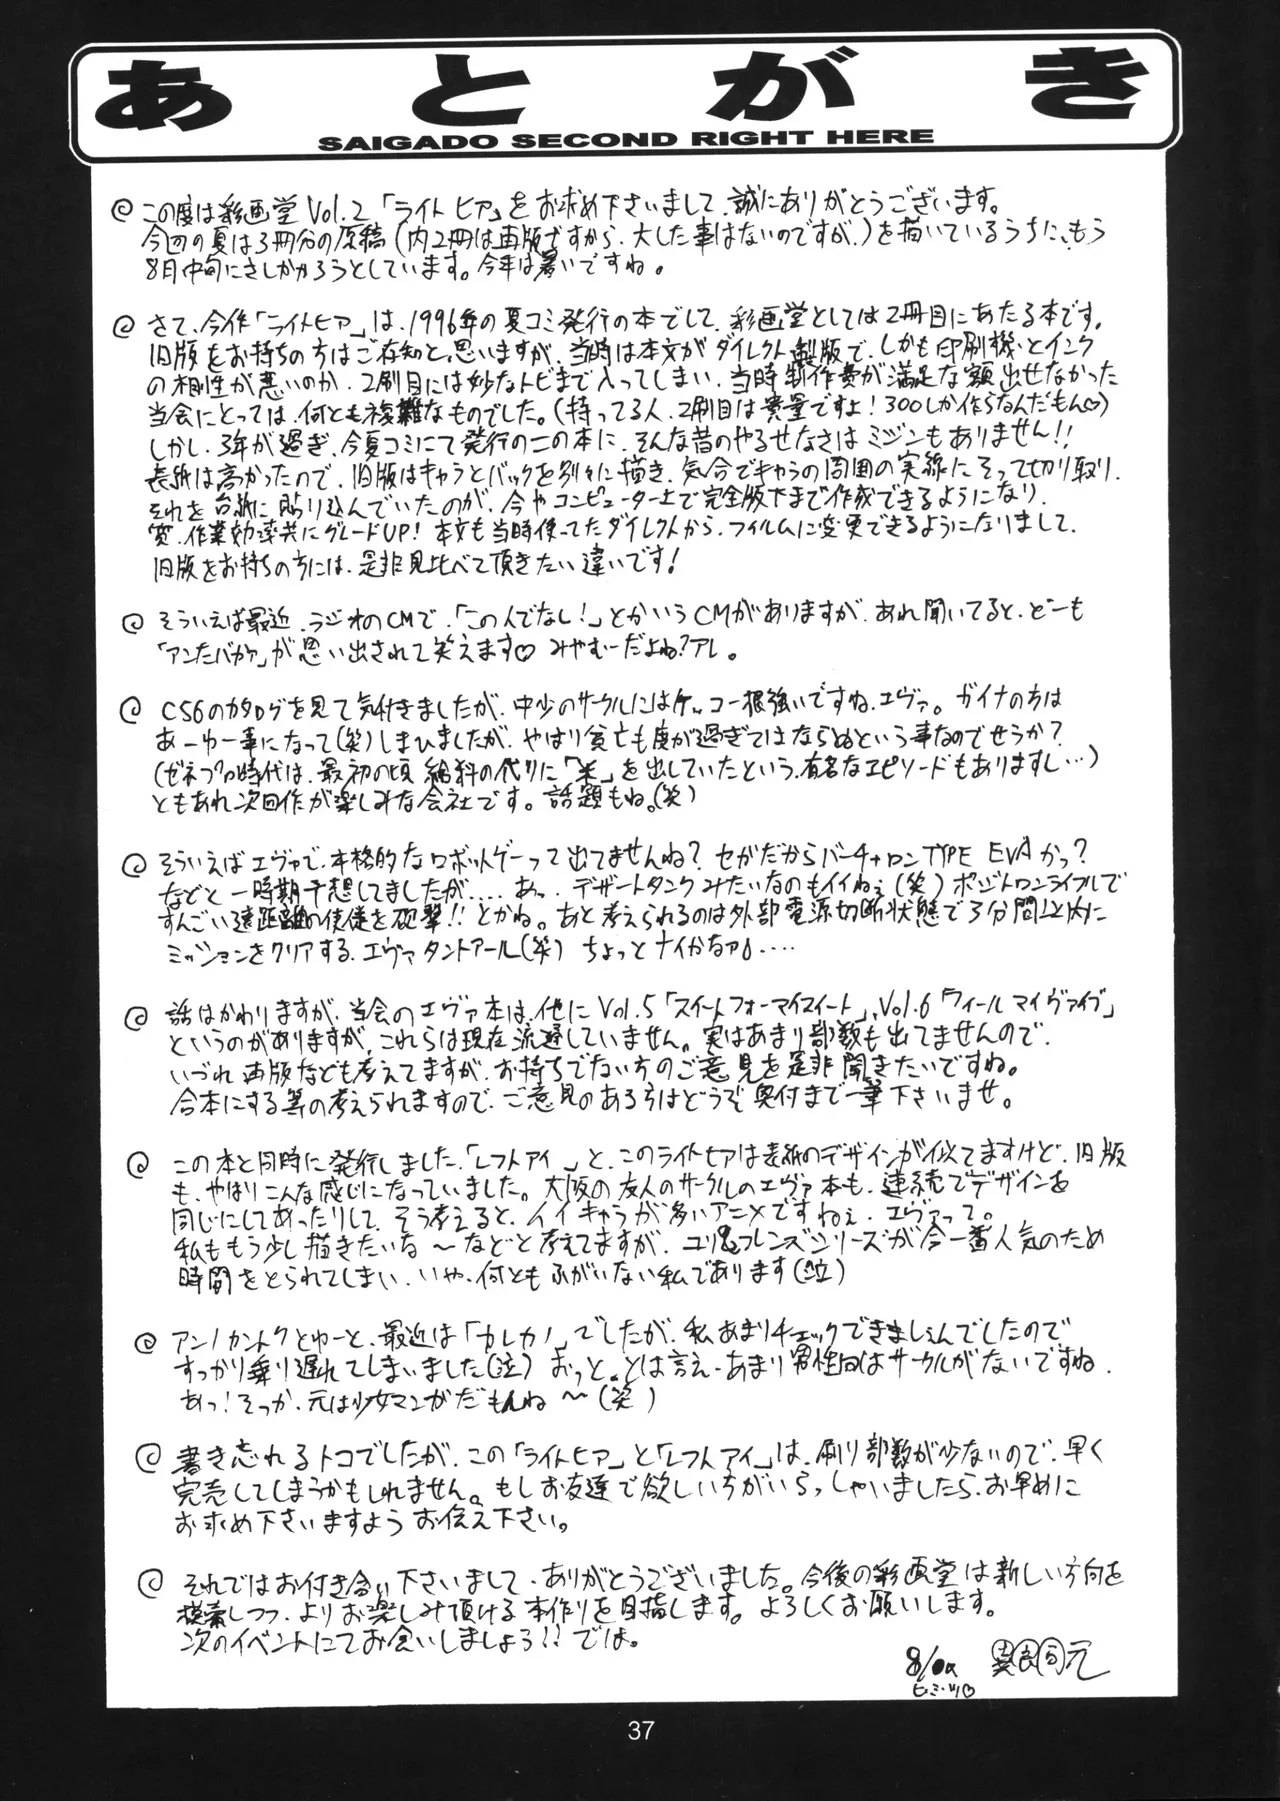 あとがき
SAIGADO SECOND RIGHT HERE
この度は彩画堂Vol.2「ライトヒア」をお求め下さいまして、誠にありがとうございます。
今回の夏は3冊分の原稿(内2冊は再版ですから、大した事はないのですが。)を描いているうちに、もう
8月中旬にさしかかろうとしています。今年は暑いですね。
さて、今作「ライトヒア」は、1996年の夏コミ発行の本でして、彩画堂としては2冊目にあたる本です。
旧版をお持ちの方はご存知と思いますが、当時は本文がダイレクト製版で、しかも印刷機とインク
の相性が悪いのか、2刷目には妙なトビまで入ってしまい、当時制作費が満足な額出せなかった
当会にとっては、何とも複雑なものでした。(持ってる人、2刷目は貴重ですよ!300しか作らなんだもん♡)
しかし、3年が過ぎ、今夏コミにて発行のこの本に、そんな昔のやるせなさはミジンもありません!!
表紙は高かったので、旧版はキャラとバックを別々に描き、気合でキャラの周囲の実線にそって切り取り、
それを台紙に貼り込んでいたのが、今やコンピューター上で完全版下まで作成できるようになり、
質、作業効率共にグレードUP!本文も当時使ってたダイレクトから、フィルムに変更できるようになりまして、
旧版をお持ちの方には、是非見比べて頂きたい違いです!
そういえば最近、ラジオのCMで、「この人でなし!」とかいうCMがありますが、あれ聞いてると、どーも
「アンたバカァ」が思い出されて笑えます♡ みやむーだよね?アレ。
C56のカタログを見て気付きましたが、中少のサークルにはケッコー根強いですね、エヴァ。ガイナの方は
あーゆー事になって(笑)しまいましたが、やはり貧乏も度が過ぎてはならぬという事なのでせうか?
(ゼネプロ時代は、最初の頃給料の代りに「米」を出していたという、有名なエピソードもありますし…)
ともあれ次回作が楽しみな会社です。話題もね。(笑)
そういえばエヴァで、本格的なロボットゲーって出てませんね?セガだからバーチャロンTYPE EVAかっ?
などと一時期予想してましたが……あっ、デザートタンクみたいなのもイイねぇ(笑)ポジトロンライフルで
すんごい遠距離の使徒を砲撃!!とかね。あと考えられるのは外部電源切断状態で3分間以内に
ミッションをクリアする、エヴァタントアール(笑)ちょっとナイかなァ。……
話はかわりますが、当会のエヴァ本は、他にVol.5「スイートフォーマイスイート」、Vol.6「フィールマイヴァイブ」
というのがありますが、これらは現在流通していません。実はあまり部数も出てませんので、
いづれ再版なども考えてますが、お持ちでない方のご意見を是非聞きたいですね。
合本にする等の考えられますので、ご意見のある方はどうぞ奥付まで一筆下さいませ。
この本と同時に発行しました、「レフトアイ」と、このライトヒアは表紙のデザインが似てますけど、旧版
も、やはりこんな感じになっていました。大阪の友人のサークルのエヴァ本も、連続でデザインを
同じにしてあったりして、そう考えると、イイキャラが多いアニメですねぇ、エヴァって。
私ももう少し描きたいな～などと考えてますが、ユリ&フレンズシリーズが今一番人気のため
時間をとられてしまい、いや、何ともふがいない私であります(泣)
アンノカントクとゆーと、最近は「カレカノ」でしたが、私あまりチェックできませんでしたので
すっかり乗り遅れてしまいました(泣)おっと、とは言え、あまり男性向はサークルがないですね、
あっ!そっか、元は少女マンガだもんね～(笑)
書き忘れるトコでしたが、この「ライトヒア」と「レフトアイ」は、刷り部数が少ないので、早く
完売してしまうかもしれません。もしお友達で欲しい方がいらっしゃいましたら、お早めに
お求め下さいますようお伝え下さい。
それではお付き合い下さいまして、ありがとうございました。今後の彩画堂は新しい方向を
模索しつつ、よりお楽しみ頂ける本作りを目指します。よろしくお願いします。
次のイベントにてお会いしましょう!!では。
37